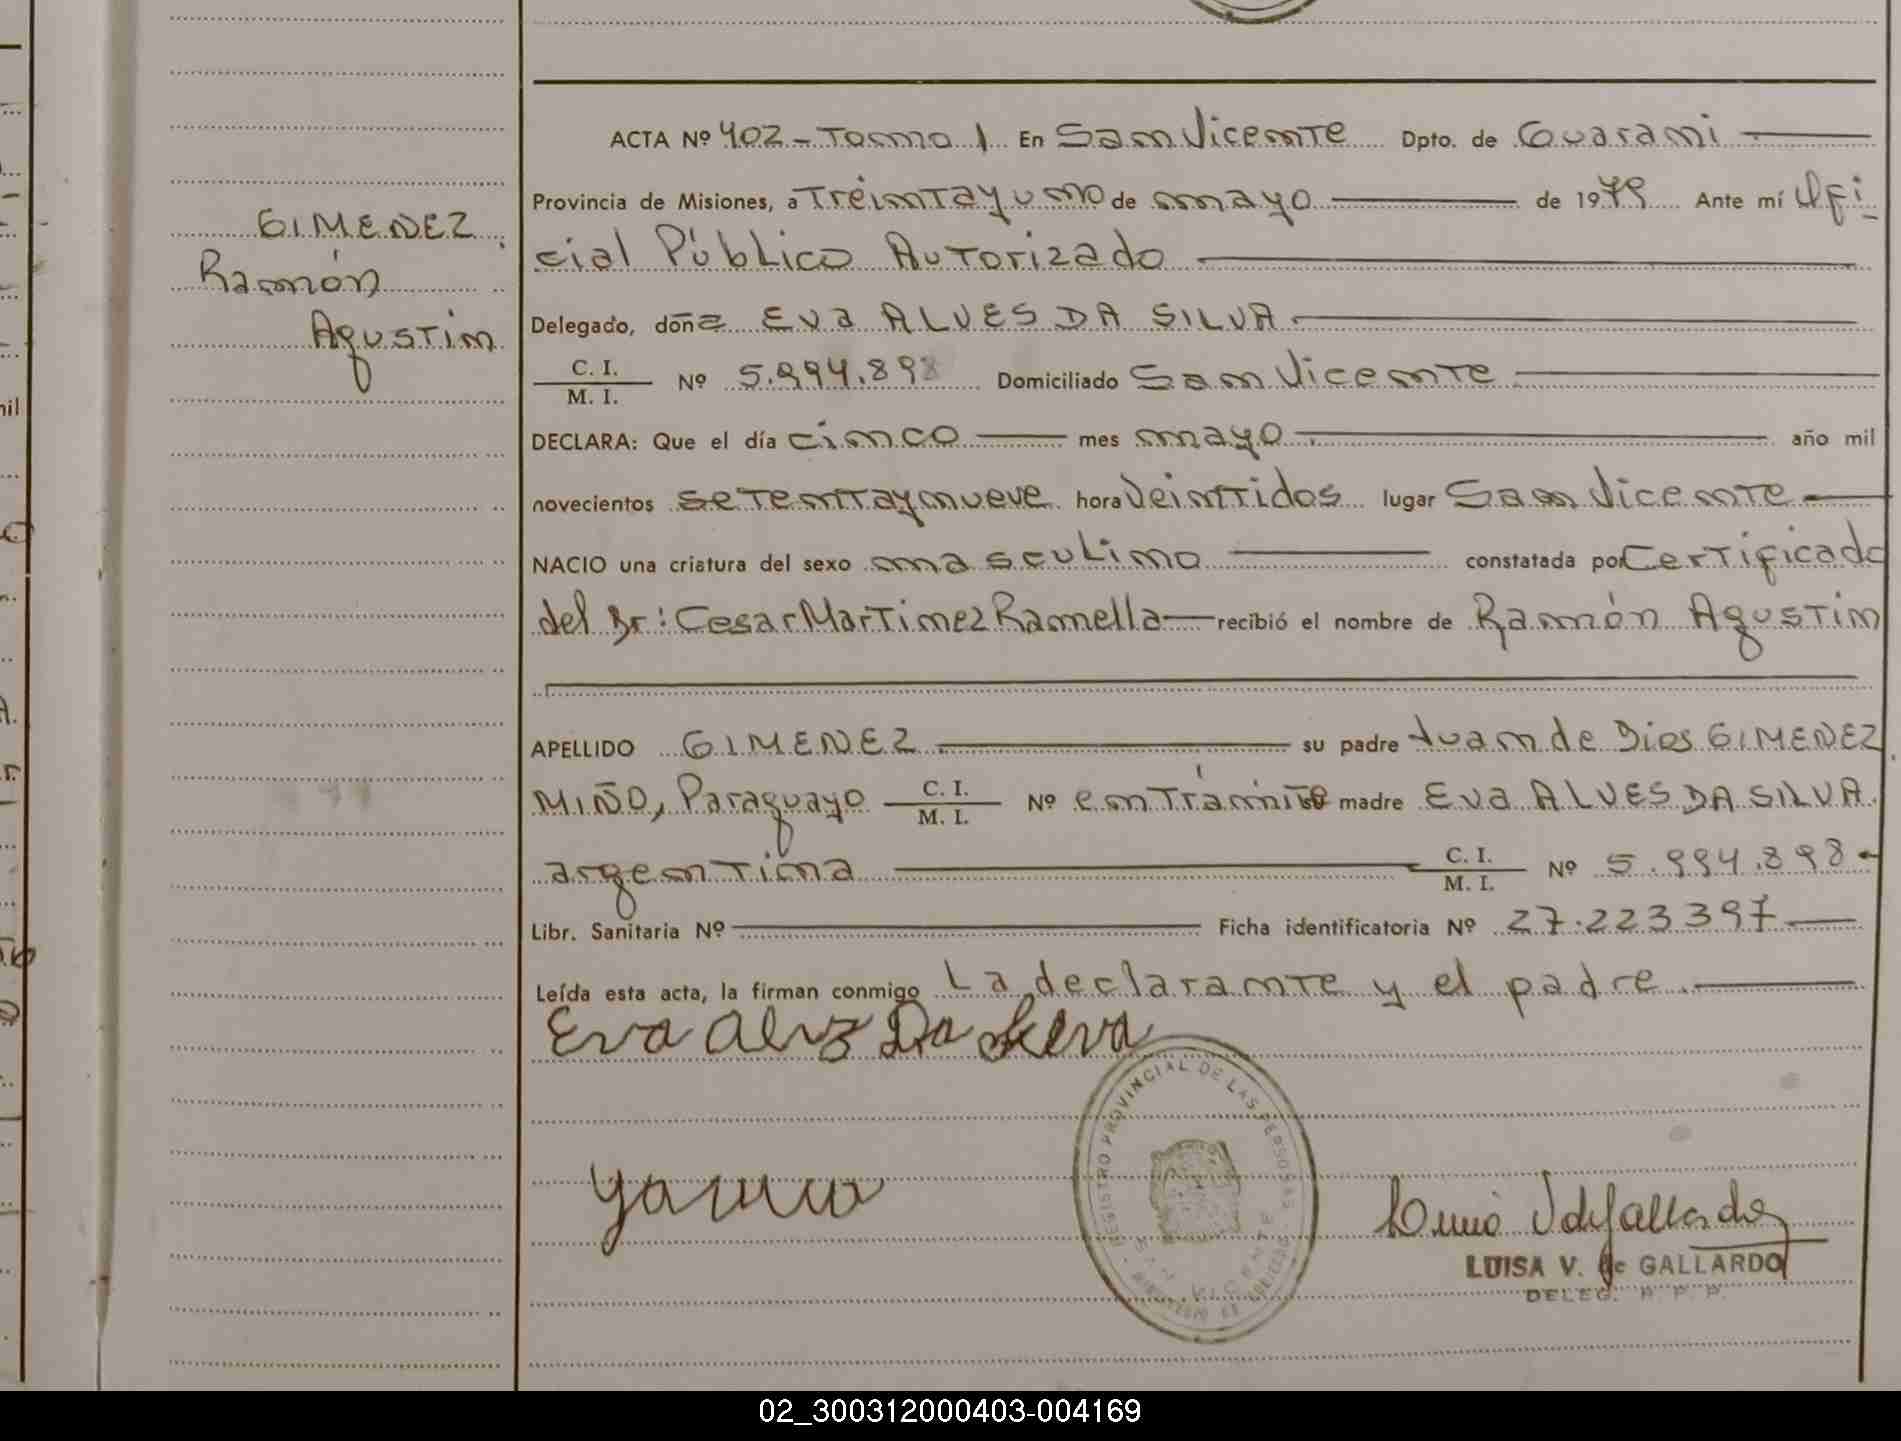 GIMENEZ
Ramón
Agustin
ACTA Nº 402 - Tomo 1 En San Vicente Dpto. de Guarani
Provincia de Misiones, a Treintayuno de mayo de 1979 Ante mí Ofi
cial Público Autorizado
Delegado, doña Eva ALVES DA SILVA
C. I.
M. I. Nº 5.994.898 Domiciliado San Vicente
DECLARA: Que el día cinco mes mayo año mil
novecientos setentaynueve hora Veintidos lugar San Vicente
NACIO una criatura del sexo masculino constatada por Certificado
del Dr: Cesar Martinez Ramella recibió el nombre de Ramón Agustin
APELLIDO GIMENEZ su padre Juan de Dios GIMENEZ
MIÑO, Paraguayo C. I. M. I. Nº en Trámite madre Eva ALVES DA SILVA
argentina C. I. M. I. Nº 5.994.898
Libr. Sanitaria Nº Ficha identificatoria Nº 27.223397
Leída esta acta, la firman conmigo La declarante y el padre
Eva Alvz Da Selva
REGISTRO PROVINCIAL DE LAS PERSONAS
SAN VICENTE
LUISA V. de GALLARDO
DELEG. R. P. P.
02_300312000403-004169